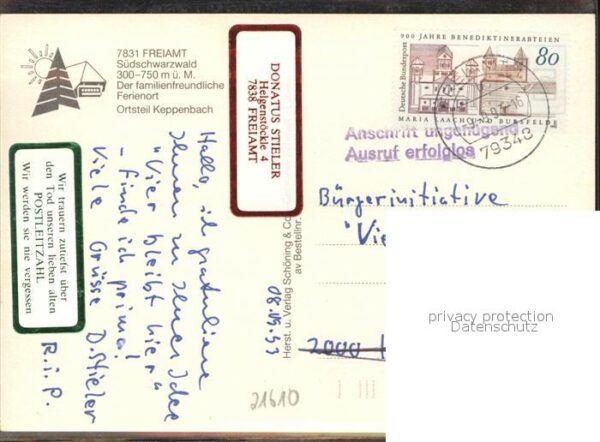 7831 FREIAMT
Südschwarzwald
300–750 m ü. M.
Der familienfreundliche
Ferienort
Ortsteil Keppenbach
DONATUS STIELER
Helgenstöckle 4
7838 FREIAMT
900 JAHRE BENEDIKTINERABTEIEN
80
Deutsche Bundespost
MARIA LAACH UND BURSFELDE
79348
Anschrift ungenügend
Ausruf erfolglos
Wir trauern zutiefst über
den Tod unseren lieben alten
POSTLEITZAHL
Wir werden sie nie vergessen
R.i.P.
Hallo, ich gratuliere
Ihnen zu Ihrer Idee
"Vier bleibt hier"
- finde ich prima!
Viele Grüsse D. Stieler
08.09.93
Herst. u. Verlag Schöning & Co
av Bestellnr.
Bürgerinitiative
"Vie
2000
21610
privacy protection
Datenschutz